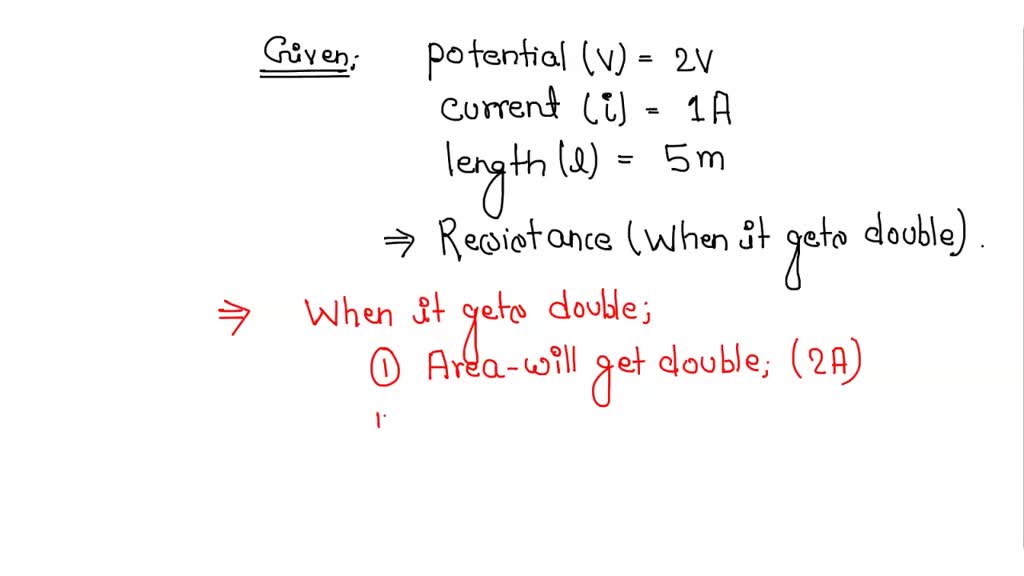 Given; potential (V) = 2V
current (i) = 1A
length (l) = 5m
⇒ Resistance (When it gets double).
⇒ When it gets double;
① Area-will get double; (2A)